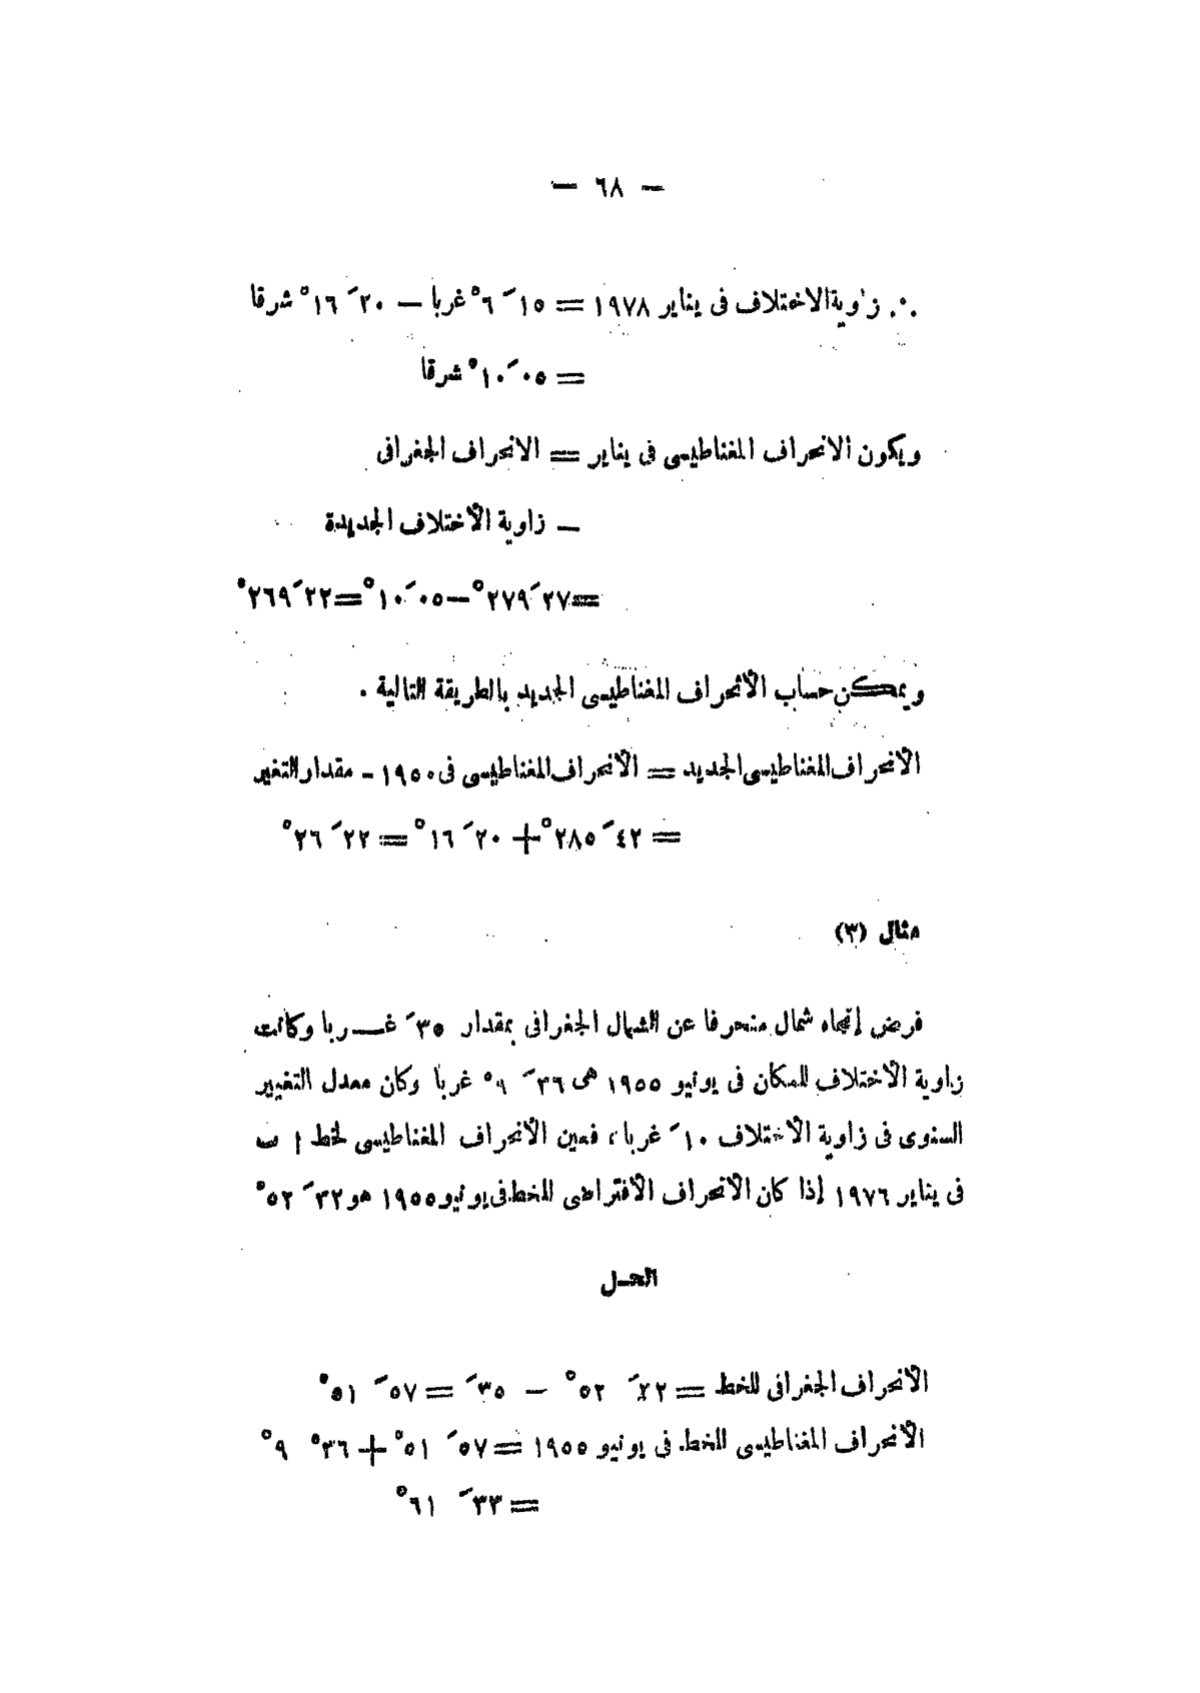 — ٦٨ —
∴ زاوية الاختلاف فى يناير ١٩٧٨ = ١٥ َ ٦° غربا — ٢٠ َ ١٦° شرقا
= ٠٥ َ ١٠° شرقا
ويكون الانحراف المغناطيسى فى يناير = الانحراف الجغرافى
— زاوية الاختلاف الجديدة
= ٢٧ َ ٢٧٩° — ٠٥ َ ١٠° = ٢٢ َ ٢٦٩°
ويمكن حساب الانحراف المغناطيسى الجديد بالطريقة التالية .
الانحراف المغناطيسى الجديد = الانحراف المغناطيسى فى ١٩٥٠ - مقدار التغير
= ٤٢ َ ٢٨٥° + ٢٠ َ ١٦° = ٢٢ َ ٢٦°
مثال (٣)
فرض إتجاه شمال منحرفا عن الشمال الجغرافى بمقدار ٣٥ َ غـــربا وكانت
زاوية الاختلاف للمكان فى يونيو ١٩٥٥ هى ٣٦ َ ٩° غربا وكان معدل التغيير
السنوى فى زاوية الاختلاف ١٠ َ غربا، فعين الانحراف المغناطيسى لخط ا ب
فى يناير ١٩٧٦ إذا كان الانحراف الافتراضى للخط فى يونيو ١٩٥٥ هو ٣٢ َ ٥٢°
الحـل
الانحراف الجغرافى للخط = ٣٢ َ ٥٢° — ٣٥ َ = ٥٧ َ ٥١°
الانحراف المغناطيسى للخط فى يونيو ١٩٥٥ = ٥٧ َ ٥١° + ٣٦° ٩°
= ٣٣ َ ٦١°